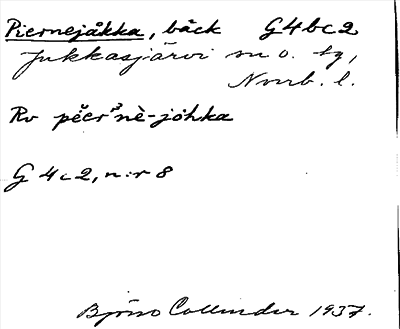 Piernejåkka, bäck G4bc2
Jukkasjärvi sn o. tg,
Norrb. l.
Rv pĕerᵊnè-jǒhka
G 4c2, n:r 8
Björn Collinder 1937.